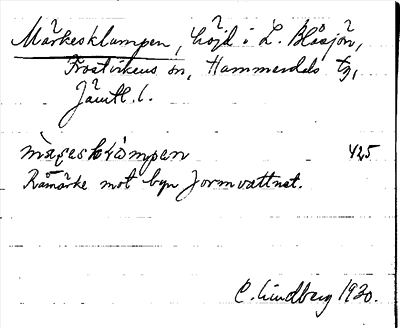 Märkesklampen, höjd i L. Blåsjön,
Frostvikens sn, Hammerdals tg,
Jämtl. l.
425
Råmärke mot byn Jormvattnet.
C. Lindberg 1930.